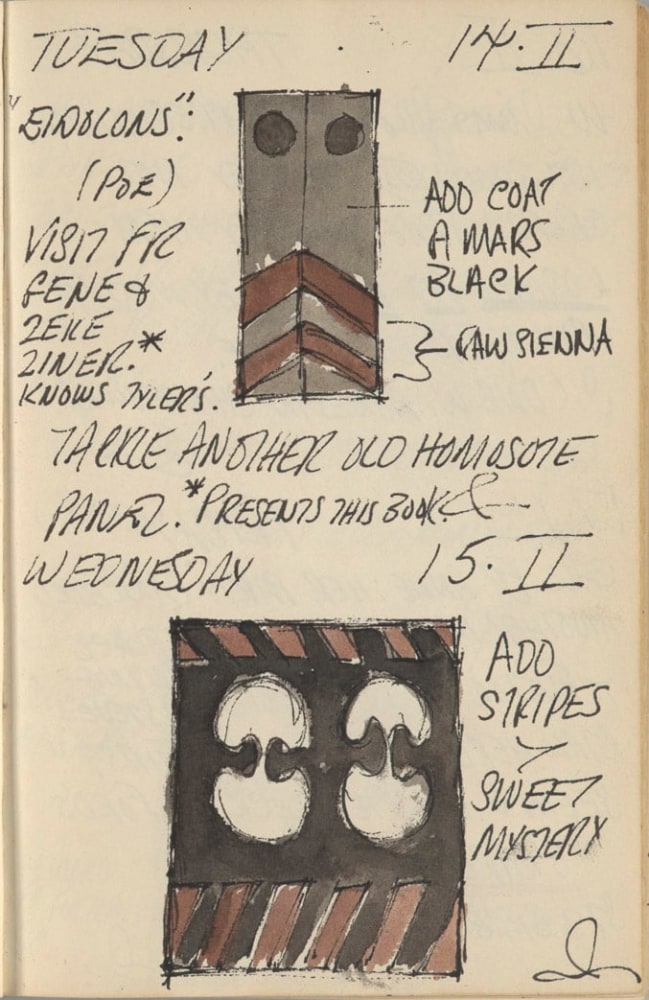 TUESDAY 14·II
"EIDOLONS":
(POE)
VISIT FR
GENE &
ZEKE
ZINER.*
KNOWS TYLER'S.
ADD COAT
A MARS
BLACK
RAW SIENNA
TACKLE ANOTHER OLD HOMOSOTE
PANEL. *PRESENTS THIS BOOK. &
WEDNESDAY 15·II
ADD
STRIPES
>
SWEET
MYSTERY